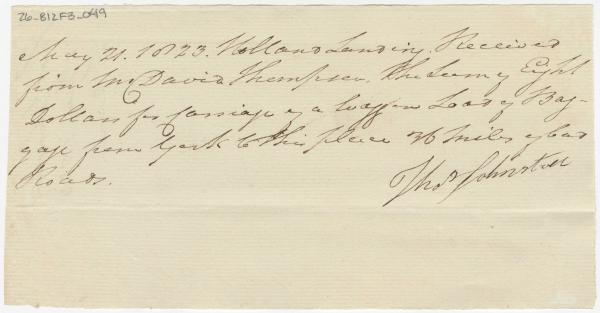 26-B12F3-049
May 21. 1823. Holland Landing. Received
from Mr David Thompson, the Sum of Eight
Dollars for carriage of a waggon Load of Bag-
gage from York to this place 36 miles of bad
Roads.
Thos Johnston